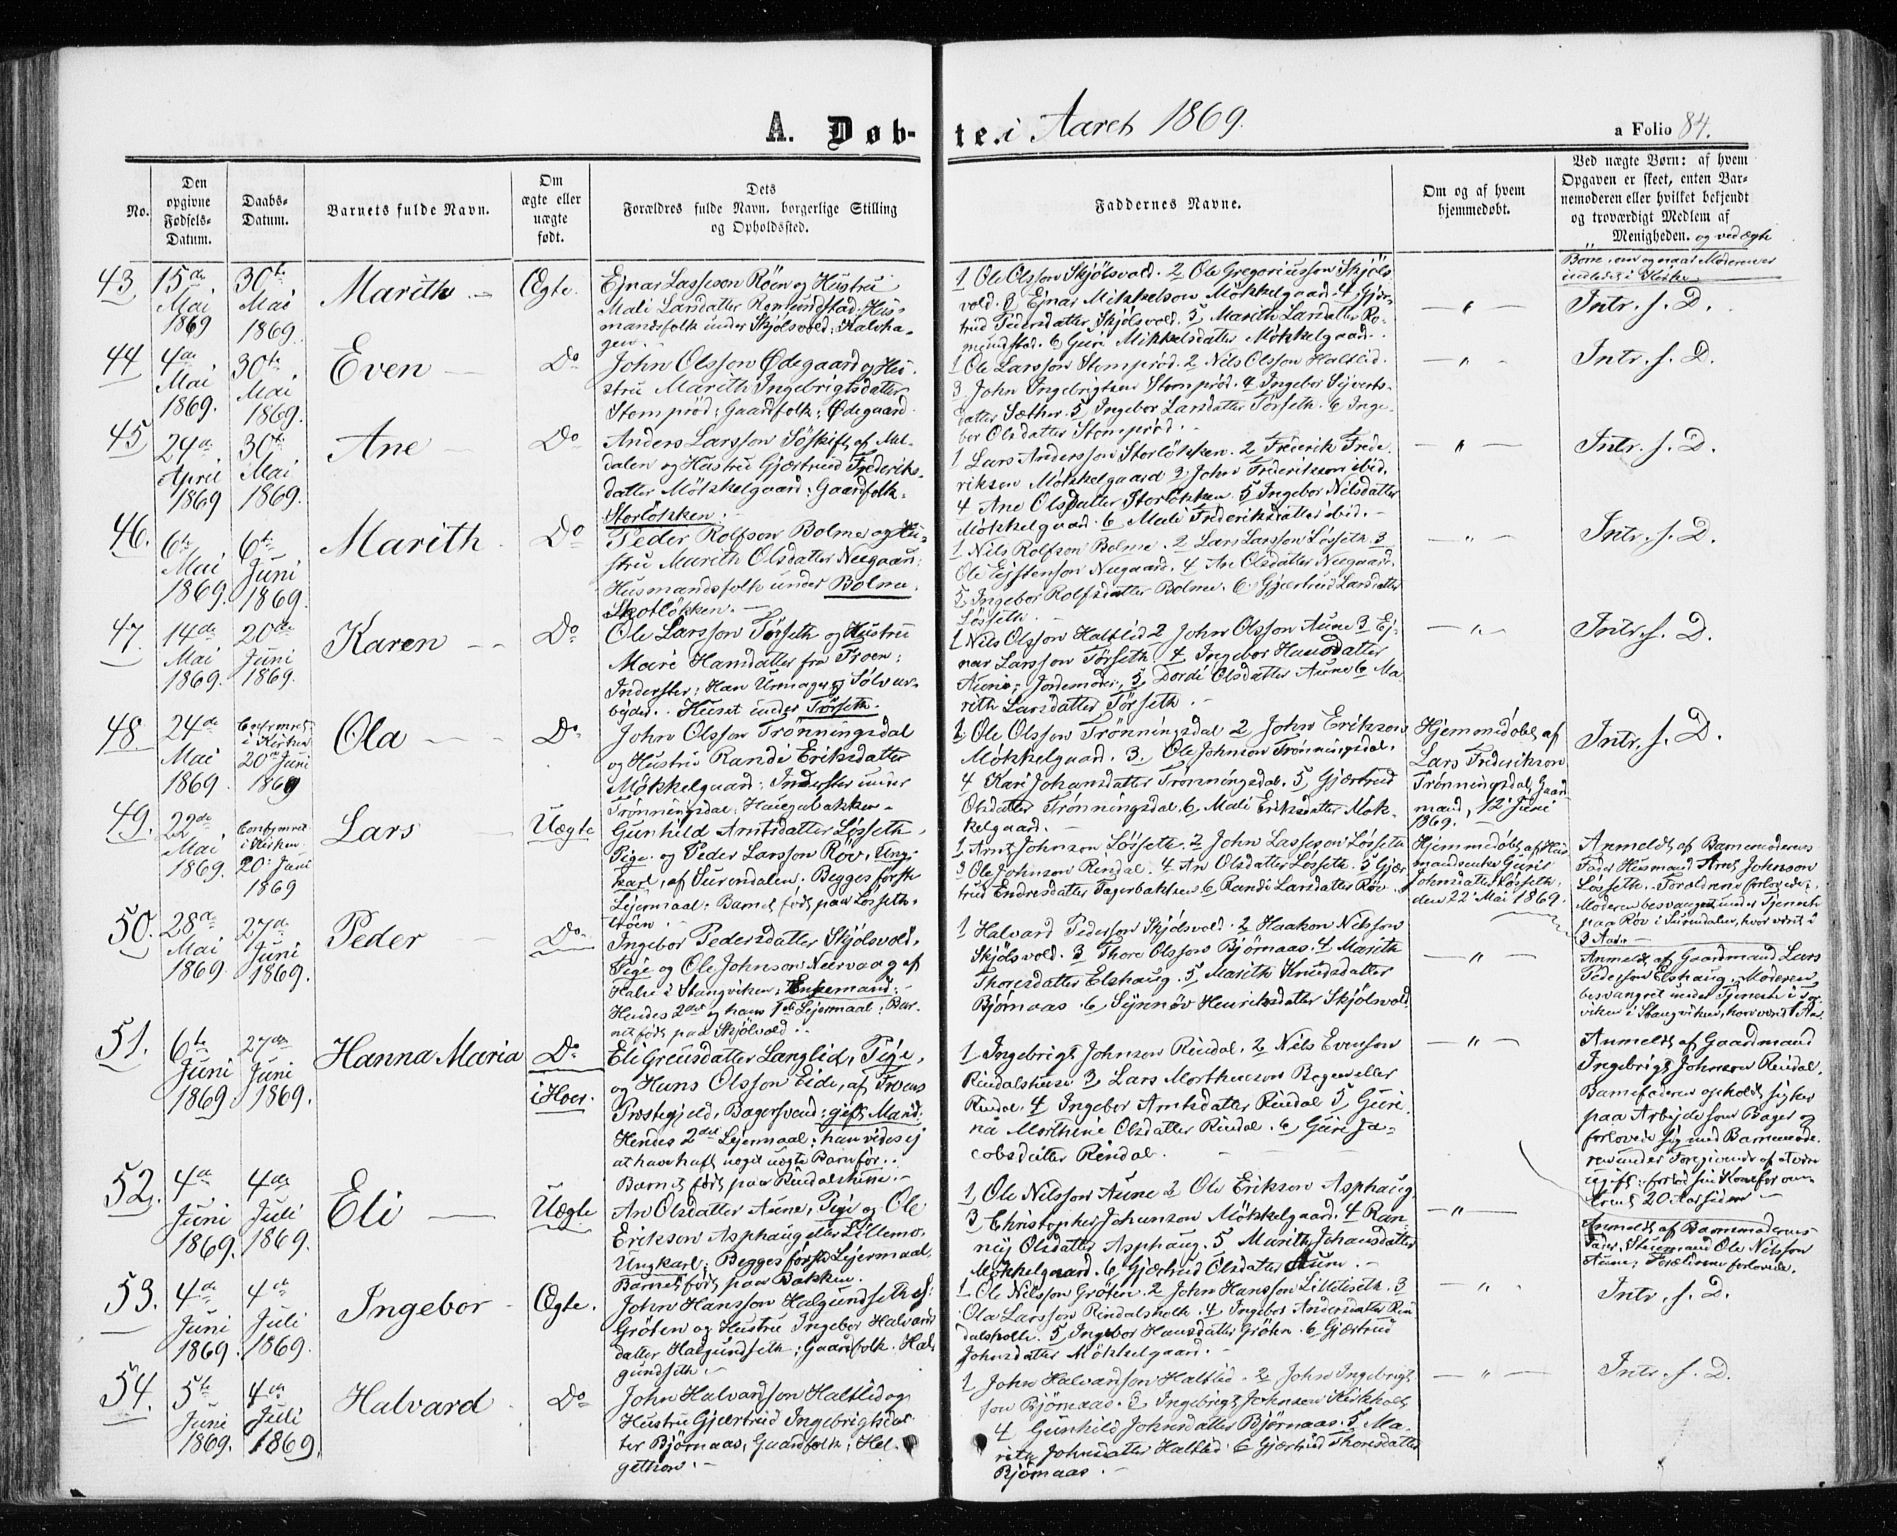 A. Døb-
te. i Aaret 1869.
a Folio 84.
No.
Den
opgivne
Fødsels-
Datum.
Daabs-
Datum.
Barnets fulde Navn.
Om
ægte eller
uægte
født.
Dets
Forældres fulde Navn, borgerlige Stilling
og Opholdssted.
Faddernes Navne.
Om og af hvem
hjemmedøbt.
Ved uægte Børn: af hvem
Opgaven er skeet, enten Bar-
nemoderen eller hvilket bekjendt
og troværdigt Medlem af
Menigheden. og ved ægte
Børn, om og naar Moderen er
indledet i Kirke.
43.
15de
Mai
1869
30te
Mai
1869.
Marith
Ægte.
Ejnar Larsson Røen og Hustru
Mali Larsdatter Romundstad: Hus-
mandsfolk under Skjølsvold:
gen.
1 Ole Olsson Skjølsvold. 2 Ole Gregoriusson Skjøls
vold. 3 Ejnar Mikkelson Møkkelgaard. 4 Gjær-
trud Pedersdatter Skjølsvold. 5 Marith Larsdatter Ro-
mundstad. 6 Guri Mikkelsdatter Møkkelgaard.
— " —
Intr. s. D.
44
4de
Mai
1869.
30te
Mai
1869.
Even
Do
John Olsson Ødegaard og Hu-
stru Marith Ingebrigtsdatter
Stomprød: Gaardfolk: Ødegaard.
1 Ole Larsson Stomprød. 2 Nils Olsson Haltlid.
3 John Ingebrigtson Stomprød. 4 Ingebor Sivertsdatter Sæther. 5 Ingebor Larsdatter Tørseth. 6 Inge-
bor Olsdatter Stomprød.
— " —
Intr. s. D.
45
24de
April
1869
30te
Mai
1869.
Ane
Do
Anders Larsson Søskift, af Mel-
dalen og Hustru Gjærtrud Frederiks-
datter Møkkelgaard: Gaardfolk:
Storløkken.
1 Lars Andersson Storløkken. 2 Frederik Frede-
rikson Møkkelgaard 3 John Frederikson ibid.
4 Ane Olsdatter Storløkken. 5 Ingebor Nilsdatter
Møkkelgaard. 6 Mali Frederiksdatter ibid.
— " —
Intr. s. D.
46.
6te
Mai
1869.
6te
Juni
1869.
Marith
Do
Peder Rolfson Bolme og Hu-
stru Marith Olsdatter Neegaard:
Husmandsfolk under Bolme.
Skotløkken.
1 Nils Rolfson Bolme. 2 Lars Larsson Løsseth. 3
Ole Eystenson Neegaard. 4 Ane Olsdatter Neegaard.
5 Ingebor Rolfsdatter Bolme. 6 Gjærtrud Larsdatter
Løsseth.
— " —
Intr. s. D.
47.
14de
Mai
1869.
20de
Juni
1869.
Karen
Do
Ole Larsson Tørseth og Hustru
Mari Hansdatter fra Froen:
Inderster: Han Urmager og Sølvar-
bejder. Huset under Tørseth.
1 Nils Olsson Haltlid 2 John Olsson Aune 3 Ej-
nar Larsson Tørseth 4 Ingebor Hansdatter
Aune: Jordemoder, 5 Dordi Olsdatter Aune 6 Ma
rith Larsdatter Tørseth.
— " —
Intr. s. D.
48.
24de
Mai
1869.
Confirmeret
i Kirken
20de Juni
1869
Ola
Do
John Olsson Trønningsdal
og Hustru Randi Eriksdatter
Møkkelgaard: Inderster under
Trønningsdal: Haugabakken
1 Ole Olsson Trønningsdal 2 John Erikson
Møkkelgaard. 3. Ole Johnson Trønningsdal.
4 Kari Johansdatter Trønningsdal. 5 Gjærtrud
Olsdatter Trønningsdal. 6 Mali Eriksdatter Møk-
kelgaard.
Hjemmedøbt af
Lars Frederikson
Trønningsdal, Gaard
mand, 12te Juni
1869.
Intr. s. D.
49.
22de
Mai
1869.
Confirmeret
i Kirken
20de Juni
1869
Lars
Uægte
Gunhild Arntsdatter Løsseth,
Pige og Peder Larsson Røv, Ung-
karl, af Surendalen. Begges første
Lejermaal: Barnet født paa Løsseth-
trøen
1 Arnt Johnson Løsseth. 2 John Larsson Løsseth
3 Ole Johnson Rindal. 4 An Olsdatter Løsseth. 5 Gjær-
trud Endresdatter Fagerbakken 6 Randi Larsdatter Røv
Hjemmedøbt af Hus
mandsenke Guri
Johnsdatter Løsseth:
den 22 Mai 1869.
Anmeldt af Barnemoderens
Fader Husmand Arnt Johnson
Løsseth. Forældrene forlovede:
Moderen besvangret under Tjeneste
paa Røv i Surendalen, hvor været i
3 Aar.
50.
28de
Mai
1869
27de
Juni
1869.
Peder
Do.
Ingebor Pedersdatter Skjølsvold,
Pige og Ole Johnson Neervaag af
Halse i Stangviken: Enkemand:
Hendes 2det og hans 1ste Lejermaal: Bar-
net født paa Skjølvold.
1 Halvard Pederson Skjølsvold. 2 Haakon Nilsson
Skjølsvold. 3 Thore Olsson Bjørnaas. 4 Marith
Thoresdatter Elshaug. 5 Marith Knudsdatter
Bjørnaas. 6 Synnøv Henriksdatter Skjølsvold
— " —
Anmeldt af Gaardmand Lars
Pederson Elshaug: Moderen
besvangret under Tjeneste i
viken i Stangviken, hvor været 1 Aar.
51.
6te
Juni
1869
27de
Juni
1869.
Hanna Maria
Do
i Hoer.
Eli Greusdatter Langlid, Pige,
og Hans Olsson Eide, af Froens
Præstegjeld, Bagersvend: gift Mand:
Hendes 2det Lejermaal: han vides ej
at have haft noget uægte Barn før.
Barnet født paa Rindalshuse.
1 Ingebrigt Johnson Rindal. 2 Nils Evenson
Rindalshuse 3 Lars Morthenson Bogen eller
Rindal. 4 Ingebor Arntsdatter Rindal 5 Guri-
na Morthine Olsdatter Rindal. 6 Guri Ja-
cobsdatter Rindal.
— " —
Anmeldt af Gaardmand
Ingebrigt Johnson Rindal.
Barnefaderen opholdt sig her
paa Arbejde som Bager og
forlovede sig med Barnemode-
ren under Foregivende af at være
ugift: forlod sin Kone for om-
trent 20 Aar siden
52.
4de
Juni
1869.
4de
Juli
1869.
Eli
Uægte
An Olsdatter Aune, Pige og Ole
Erikson Asphaug eller Lillemo,
Ungkarl: Begges første Lejermaal.
Barnet født paa Bakken.
1 Ole Nilsson Aune 2 Ole Erikson Asphaug
3 Christopher Johanson Møkkelgaard. 4 Ran-
nej Olsdatter Asphaug. 5 Marith Johansdatter
Møkkelgaard. 6 Gjærtrud Olsdatter Aune.
— " —
Anmeldt af Barnemoderens
Fader, Huusmand Ole Nilsson
Aune: Forældrene forlovede.
53.
4de
Juni
1869.
4de
Juli
1869.
Ingebor
Ægte.
John Hansson Halgundseth af
Grøten og Hustru Ingebor Halvards
datter Halgundseth: Gaardfolk. Hal-
gundseth.
1 Ole Nilsson Grøten 2 John Hansson Lilleliseth. 3
Ola Larsson Rindalsholt. 4 Ingebor Andersdatter Rin
dalsholt. 5 Ingebor Hansdatter Grøten. 6 Gjærtrud
Johnsdatter Møkkelgaard.
— " —
Intr. s. D.
54.
5te
Juni
1869.
4de
Juli
1869
Halvard
Do
John Halvardson Haltlid og
Hustru Gjærtrud Ingebrigtsdat
ter Bjørnaas, Gaardfolk: Hel-
gethon.
1 John Halvardson Haltlid. 2 John Ingebrigt
son Bjørnaas. 3 Ingebrigt Johnson Kirkholt
4 Gunhild Johnsdatter Bjørnaas. 5 Ma-
rith Johnsdatter Haltlid 6 Gjærtrud Thoresdatter
Bjørnaas.
— " —
Intr. s. D.